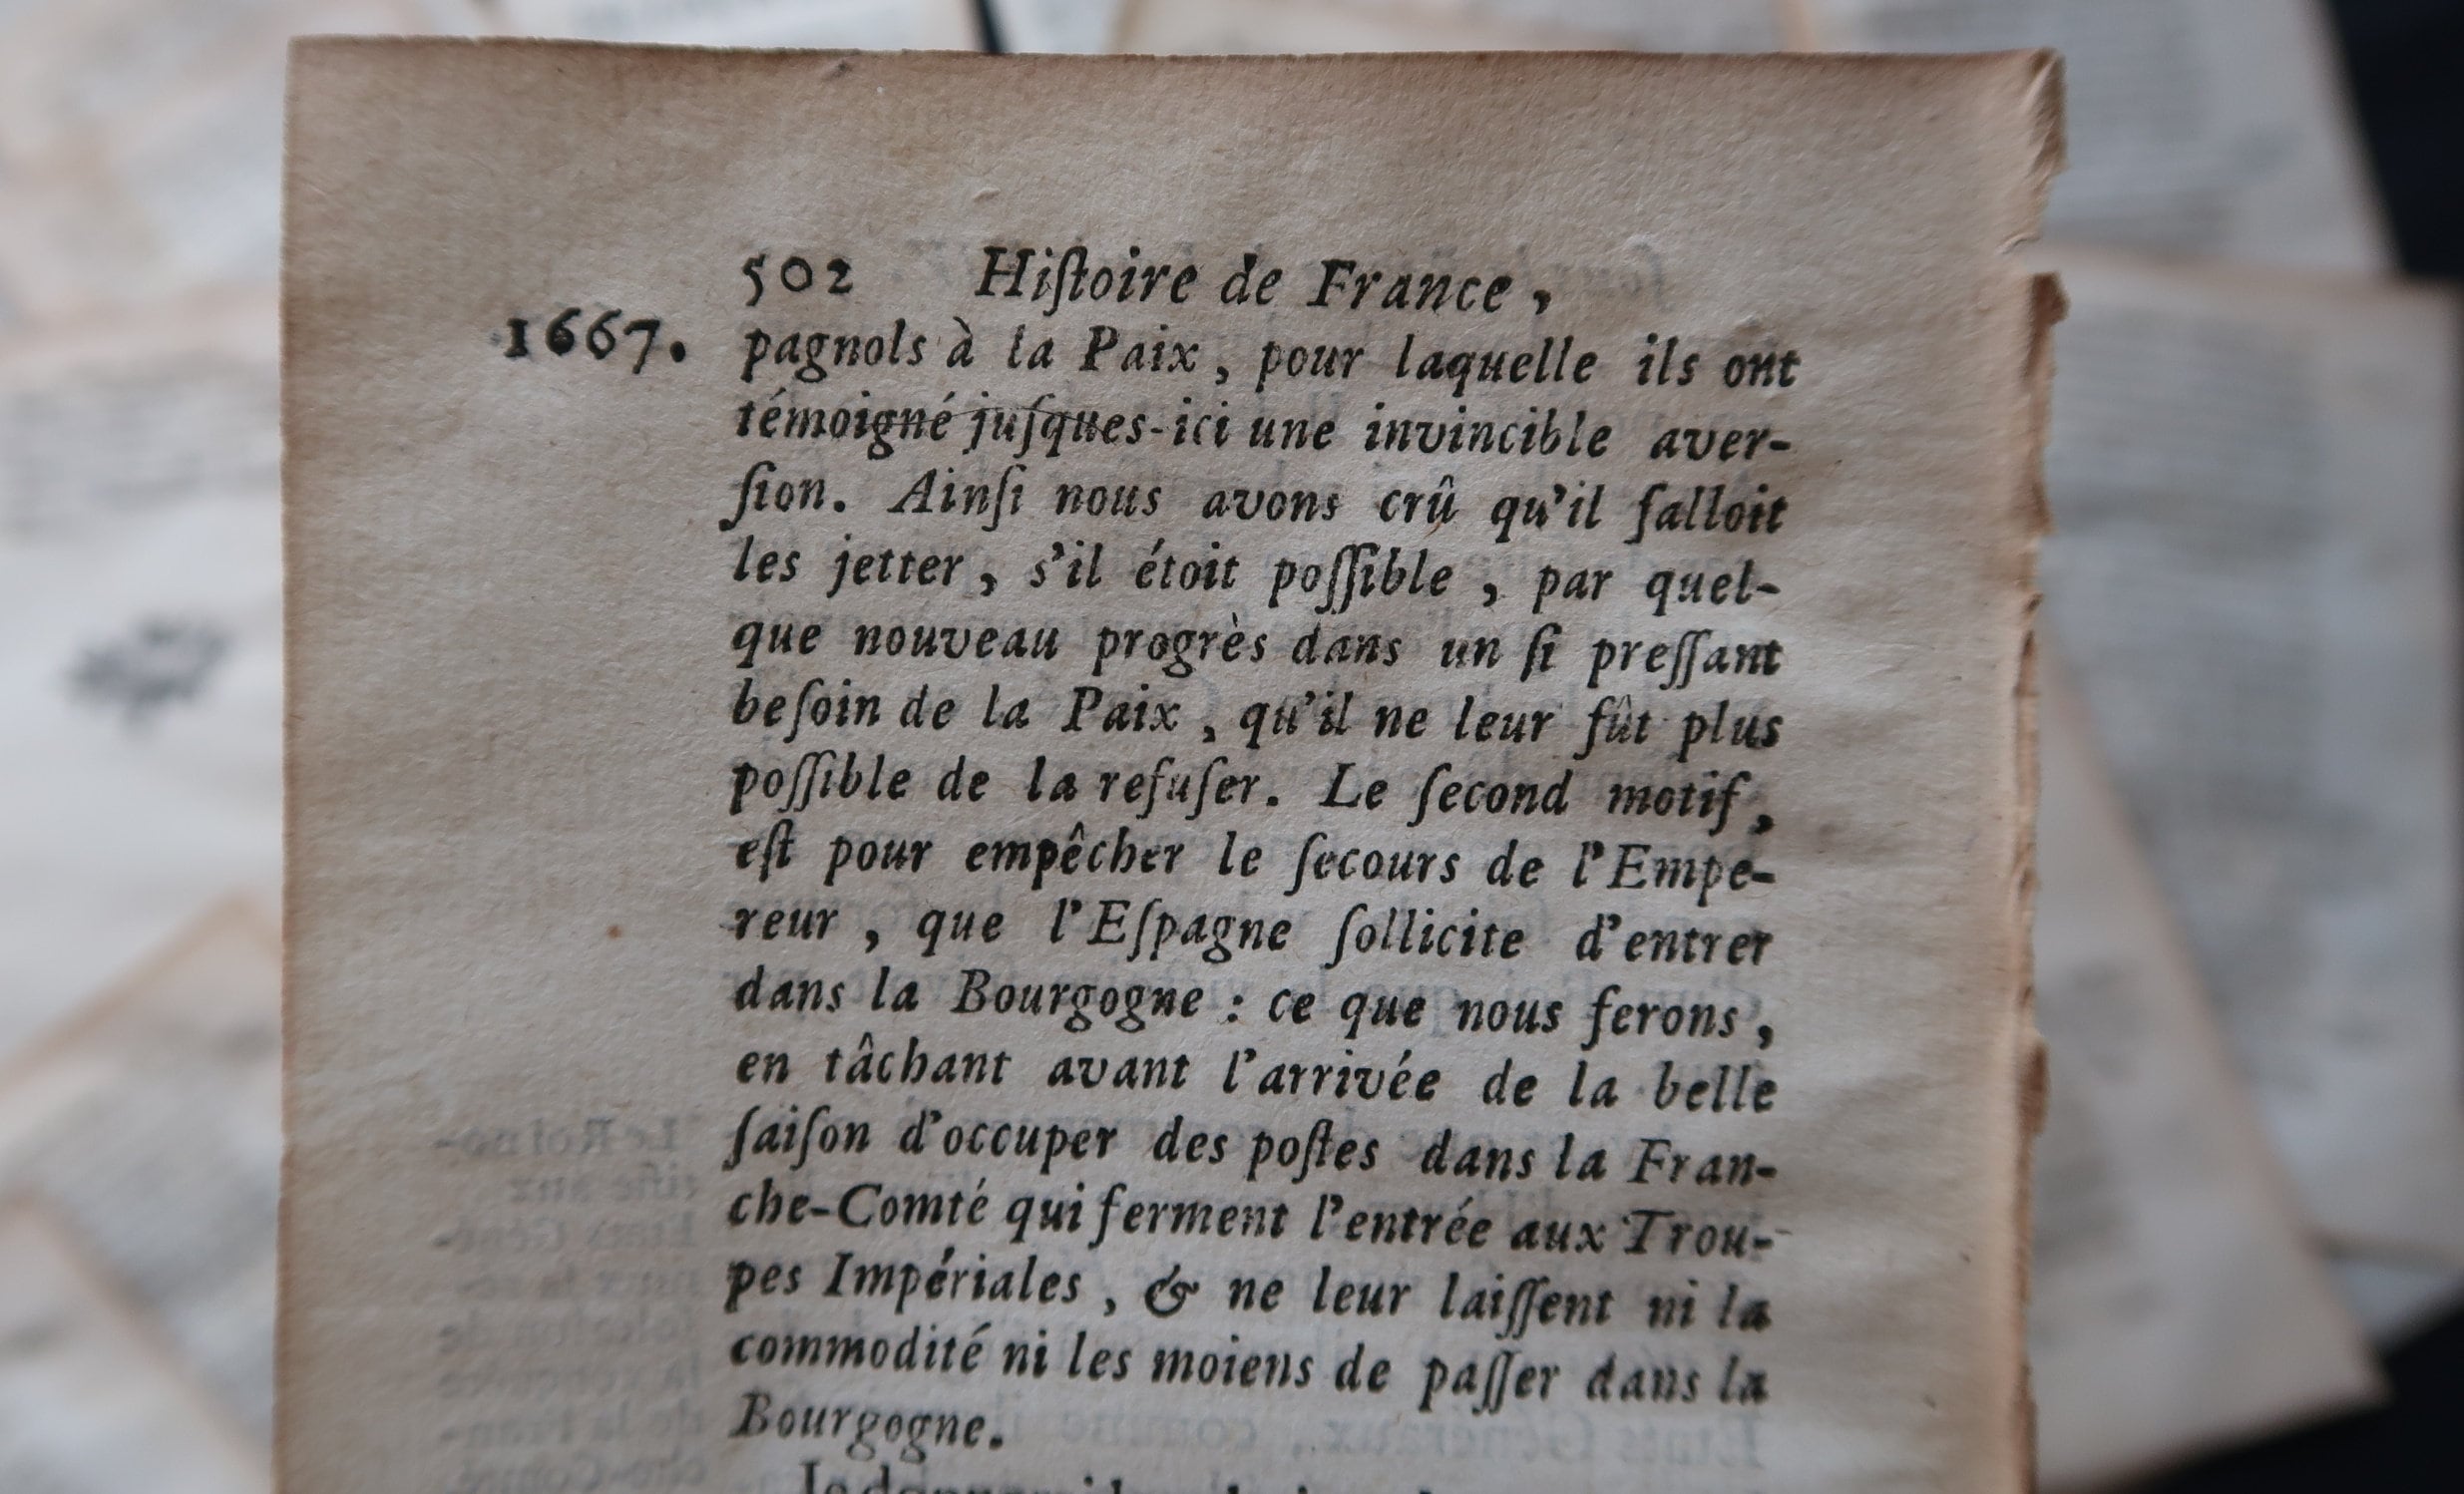 502 Hiſtoire de France,
1667. pagnols à la Paix, pour laquelle ils ont
témoigné juſques-ici une invincible aver-
ſion. Ainſi nous avons crû qu'il falloit
les jetter, s'il étoit poſſible, par quel-
que nouveau progrès dans un ſi preſſant
beſoin de la Paix, qu'il ne leur fût plus
poſſible de la refuſer. Le ſecond motif,
eſt pour empêcher le ſecours de l'Empe-
reur, que l'Eſpagne ſollicite d'entrer
dans la Bourgogne : ce que nous ferons,
en tâchant avant l'arrivée de la belle
ſaiſon d'occuper des poſtes dans la Fran-
che-Comté qui ferment l'entrée aux Trou-
pes Impériales, & ne leur laiſſent ni la
commodité ni les moiens de paſſer dans la
Bourgogne.